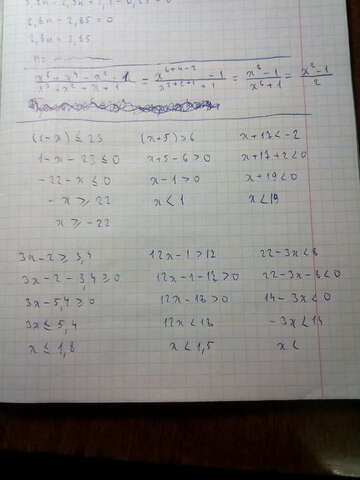 2,3x = 2,65
x⁶ + x⁴ - x² - 1 / x³ + x² + x + 1 = x⁶⁺⁴⁻² - 1 / x³⁺²⁺¹ + 1 = x⁸ - 1 / x⁶ + 1 = x² - 1 / 2
(1 - x) ≤ 23
1 - x - 23 ≤ 0
-22 - x ≤ 0
- x ≥ 22
x ≥ -22
(x+5) > 6
x+5-6 > 0
x - 1 > 0
x < 1
x + 17 < -2
x + 17 + 2 < 0
x + 19 < 0
x < 19
3x - 2 ≥ 3,4
3x - 2 - 3,4 ≥ 0
3x - 5,4 ≥ 0
3x ≤ 5,4
x ≤ 1,8
12x - 1 > 17
12x - 1 - 17 > 0
12x - 18 > 0
12x < 18
x < 1,5
22 - 3x < 8
22 - 3x - 8 < 0
14 - 3x < 0
- 3x < 14
x <